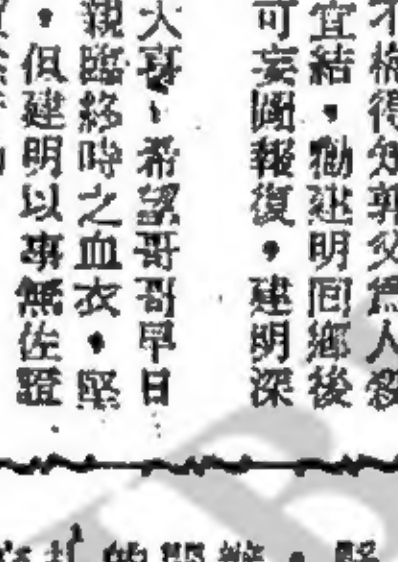 得知郭父爲人殺
宜結，勸建明囘鄉後
可妄圖報復，建明深
希望哥哥早日
親臨終時之血衣，堅
，但建明以事無佐證